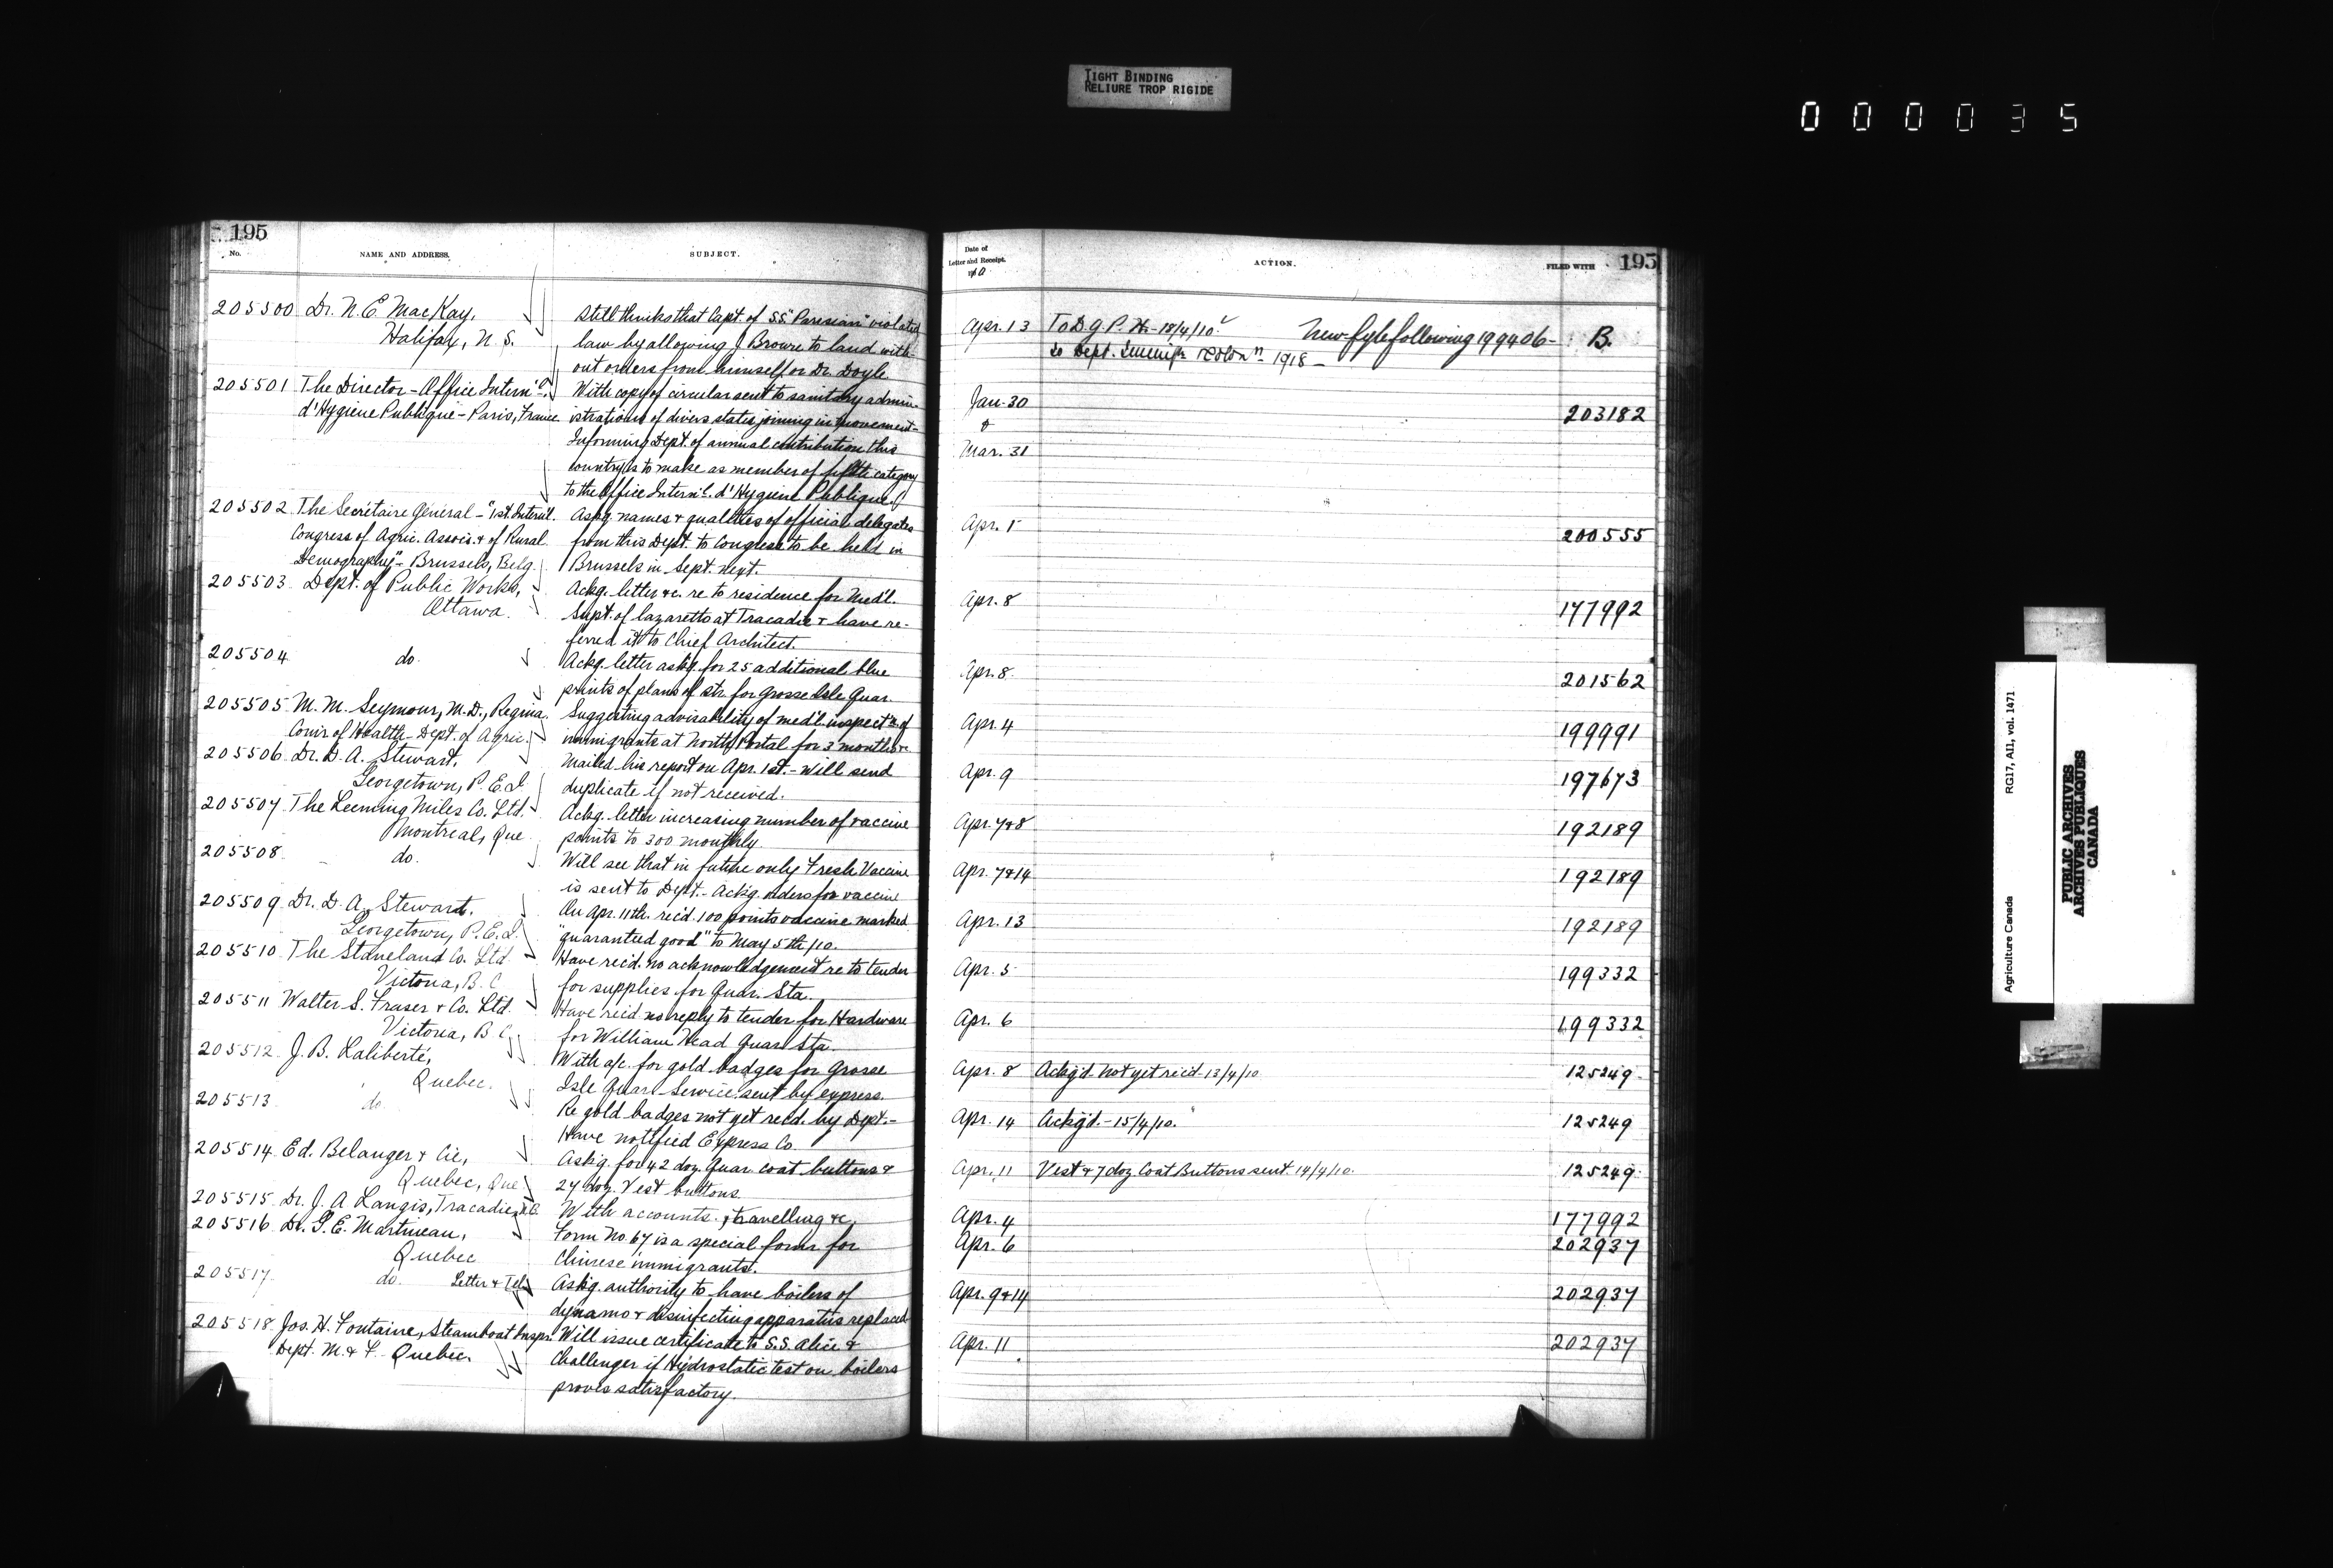 TIGHT BINDING
RELIURE TROP RIGIDE
000035
195
No.
NAME AND ADDRESS.
SUBJECT.
205500 Dr. N. E. MacKay,
Halifax, N. S.
Still thinks that Capt. of S.S. "Parisian" violated
law by allowing J. Browne to land with-
out orders from himself or Dr. Doyle.
205501 The Director - Office Intern'l.
d'Hygiene Publique - Paris, France
With copy of circular sent to sanitary admin-
istrations of divers states joining in movement-
Informing Dept. of annual contribution this
country is to make as member of fifth category
to the Office Intern'l. d'Hygiene Publique.
205502 The Secrétaire General - "1st. Intern'l.
Congress of Agric. Assocs. & of Rural
Demography" - Brussels, Belg.
Askg. names & qualities of official delegates
from this Dept. to Congress to be held in
Brussels in Sept. next.
205503 Dept. of Public Works,
Ottawa.
Ackg. letter &c. re to residence for Med'l.
Supt. of lazaretto at Tracadie & have re-
ferred it to Chief Architect.
205504 do.
Ackg. letter askg. for 25 additional blue
prints of plans of str. for Grosse Isle Quar.
205505 M. M. Seymour, M.D., Regina.
Com'r of Health - Dept. of Agric.
Suggesting advisability of med'l. inspect'n. of
immigrants at North Portal for 3 months &c.
205506 Dr. D. A. Stewart,
Georgetown, P. E. I.
Mailed his report on Apr. 1st. - Will send
duplicate if not received.
205507 The Leeming Miles Co. Ltd.
Montreal, Que.
Ackg. letter increasing number of vaccine
points to 300 monthly.
205508 do.
Will see that in future only Fresh Vaccine
is sent to Dept. - Ack'g. orders for vaccine
205509 Dr. D. A. Stewart.
Georgetown, P. E. I.
On Apr. 11th. rec'd. 100 points vaccine marked
"guaranteed good" to May 5th/10.
205510 The Staneland Co. Ltd.
Victoria, B. C.
Have rec'd. no acknowledgement re to tender
for supplies for Quar. Sta.
205511 Walter S. Fraser & Co. Ltd.
Victoria, B. C.
Have rec'd no reply to tender for Hardware
for William Head Quar. Sta.
205512 J. B. Laliberté,
Quebec.
With a/c. for gold badges for Grosse
Isle Quar. Service sent by express.
205513 do
Re gold badges not yet recd. by Dept. -
Have notified Express Co.
205514 Ed. Belanger & Cie,
Quebec, Que.
Ask'g. for 42 doz. Quar. coat buttons &
27 doz. Vest buttons.
205515 Dr. J. A Langis, Tracadie, N.B.
With accounts, travelling &c.
205516 Dr. G. E. Martineau,
Quebec
Form No. 67 is a special form for
Chinese immigrants.
205517 do. Letter & Tel.
Ask'g. authority to have boilers of
dynamo & disinfecting apparatus replaced
205518 Jos. H. Fontaine, Steamboat Inspr.
Dept. M. & F. - Quebec.
Will issue certificate to S.S. Alice &
Challenger if Hydrostatic test on boilers
proves satisfactory.
Date of
Letter and Receipt.
1910
ACTION.
FILED WITH
195
Apr. 13 To D. G. P. H. - 18/4/10. New fyle following 199406 - B.
to Dept. Immig'n & Col'n - 1918 -
Jan. 30 203182
&
Mar. 31
Apr. 1 200555
Apr. 8 177992
Apr. 8 201562
Apr. 4 199991
Apr. 9 197673
Apr. 7 & 8 192189
Apr. 7 & 14 192189
Apr. 13 192189
Apr. 5 199332
Apr. 6 199332
Apr. 8 Ackg'd. Not yet rec'd - 13/4/10 125249
Apr. 14 Ackg'd. - 15/4/10. 125249
Apr. 11 Vest & 7 doz. Coat Buttons sent. 14/4/10. 125249
Apr. 4 177992
Apr. 6 202937
Apr. 9 & 14 202937
Apr. 11 202937
Agriculture Canada RG17, AII, vol. 1471
PUBLIC ARCHIVES
ARCHIVES PUBLIQUES
CANADA